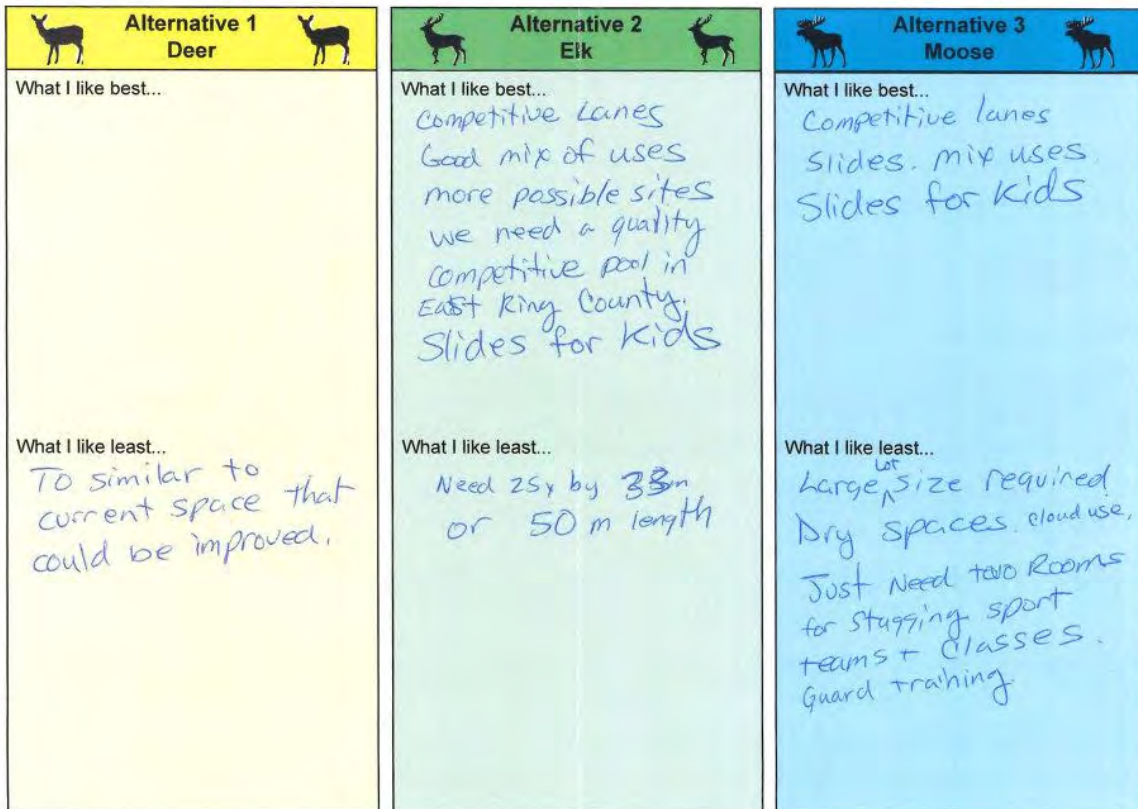 Alternative 1
Deer
What I like best...
What I like least...
To similar to
current space that
could be improved.
Alternative 2
Elk
What I like best...
Competitive Lanes
Good mix of uses
more possible sites
we need a quality
competitive pool in
East King County.
Slides for Kids
What I like least...
Need 25y by m
or 50 m length
Alternative 3
Moose
What I like best...
Competitive lanes
Slides. mix uses.
Slides for Kids
What I like least...
Large Lot size required
Dry spaces. cloud use.
Just Need two Rooms
for Stagging sport
teams + Classes.
Guard training.